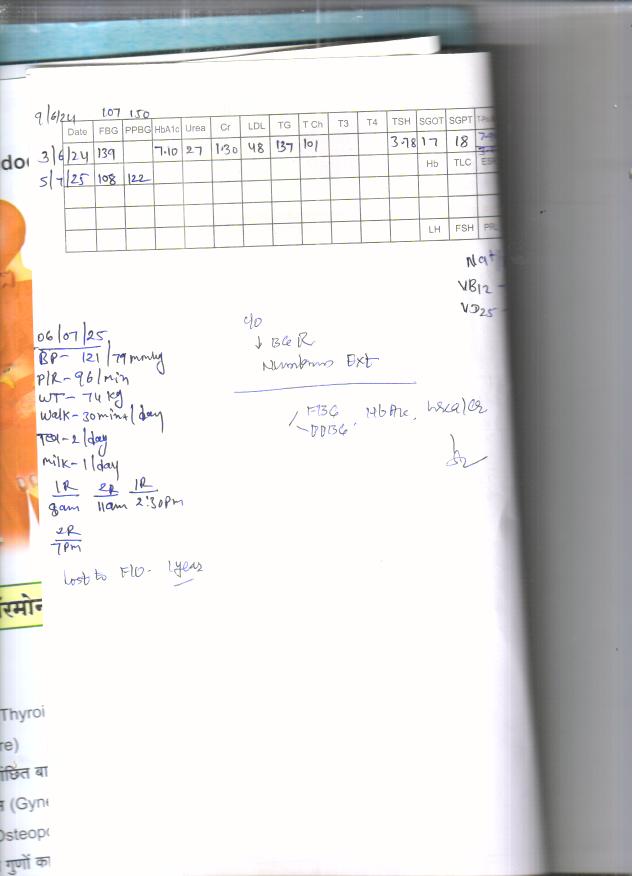 9/6/24 107 150
Date FBG PPBG HbA1c Urea Cr LDL TG T Ch T3 T4 TSH SGOT SGPT
3/6/24 139 7.10 27 1.30 48 137 101 3.78 17 18
Hb TLC ES
5/7/25 108 122
LH FSH PRL
Na+
VB12 -
VD25 -
c/o
06/07/25
BP- 121/79 mmHg
P/R- 96/min
WT- 74 kg
Walk- 30 mint/day
Tea- 2/day
Milk- 1/day
1R 2R 1R
8am 11am 2:30pm
2R
7pm
Numbness Ext
FBG
PPBG, HbA1c, Urea/Cr
Lost to F/O- 1 year
do
रमोन
Thyroi
re)
ांछित बा
(Gyne
Osteopo
गुणों का